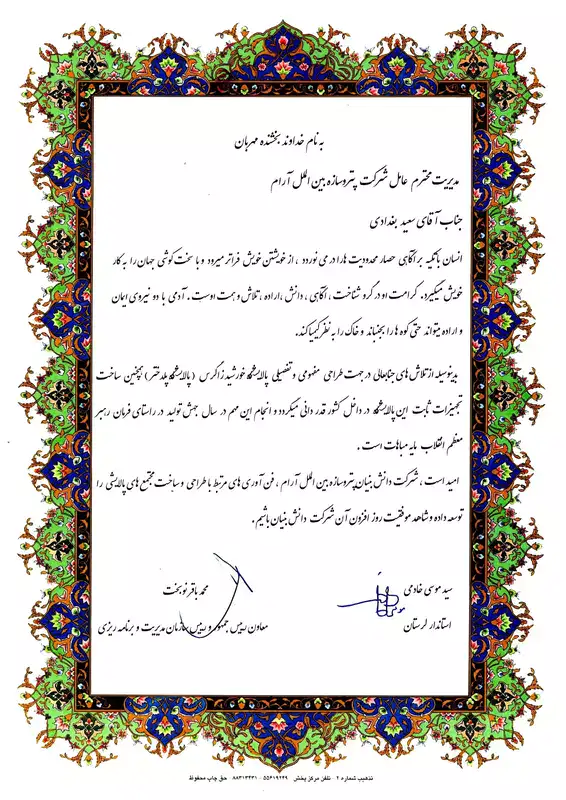 به نام خداوند بخشنده مهربان
مدیریت محترم عامل شرکت پتروسازه بین الملل آرام
جناب آقای سعید بغدادی
انسان با تکیه بر آگاهی حصار محدودیت ها را در می نوردد ، از خویشتن خویش فراتر میرود و با سخت کوشی جهان را به کار
خویش میگیرد. کرامت او در گرو شناخت ، آگاهی ، دانش ،اراده ، تلاش و همت اوست. آدمی با دو نیروی ایمان
و اراده میتواند حتی کوه ها را بجنباند و خاک را به نظر کیمیا کند.
بدینوسیله از تلاش های جنابعالی در جهت طراحی مفهومی و تفصیلی پالایشگاه خورشید زاگرس (پالایشگاه پلدختر) همچنین ساخت
تجهیزات ثابت این پالایشگاه در داخل کشور قدر دانی میگردد و انجام این مهم در سال جهش تولید در راستای فرمان رهبر
معظم انقلاب مایه مباهات است .
امید است ، شرکت دانش بنیان پتروسازه بین الملل آرام ، فن آوری های مرتبط با طراحی و ساخت مجتمع های پالایشی را
توسعه داده و شاهد موفقیت روز افزون آن شرکت دانش بنیان باشیم .
سید موسی خادمی
استاندار لرستان
محمد باقر نوبخت
معاون رییس جمهور و رییس سازمان مدیریت و برنامه ریزی
تذهیب شماره ۲ - تلفن مرکز پخش ۵۵۶۱۹۲۴۹ - ۸۸۳۱۳۳۳۱ حق چاپ محفوظ